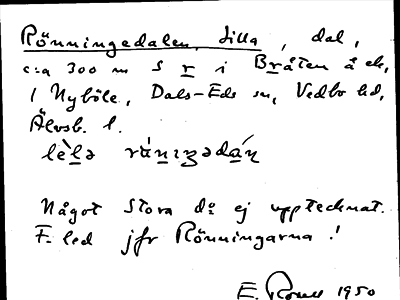 Rönningedalen, Lilla, dal,
c:a 300 m S r i Bråten å ek,
1 Nyböle, Dals-Eds sn, Vedbo hd,
Älvsb. l.
Något Stora d:o ej upptecknat.
F. led jfr Rönningarna!
E. 1950